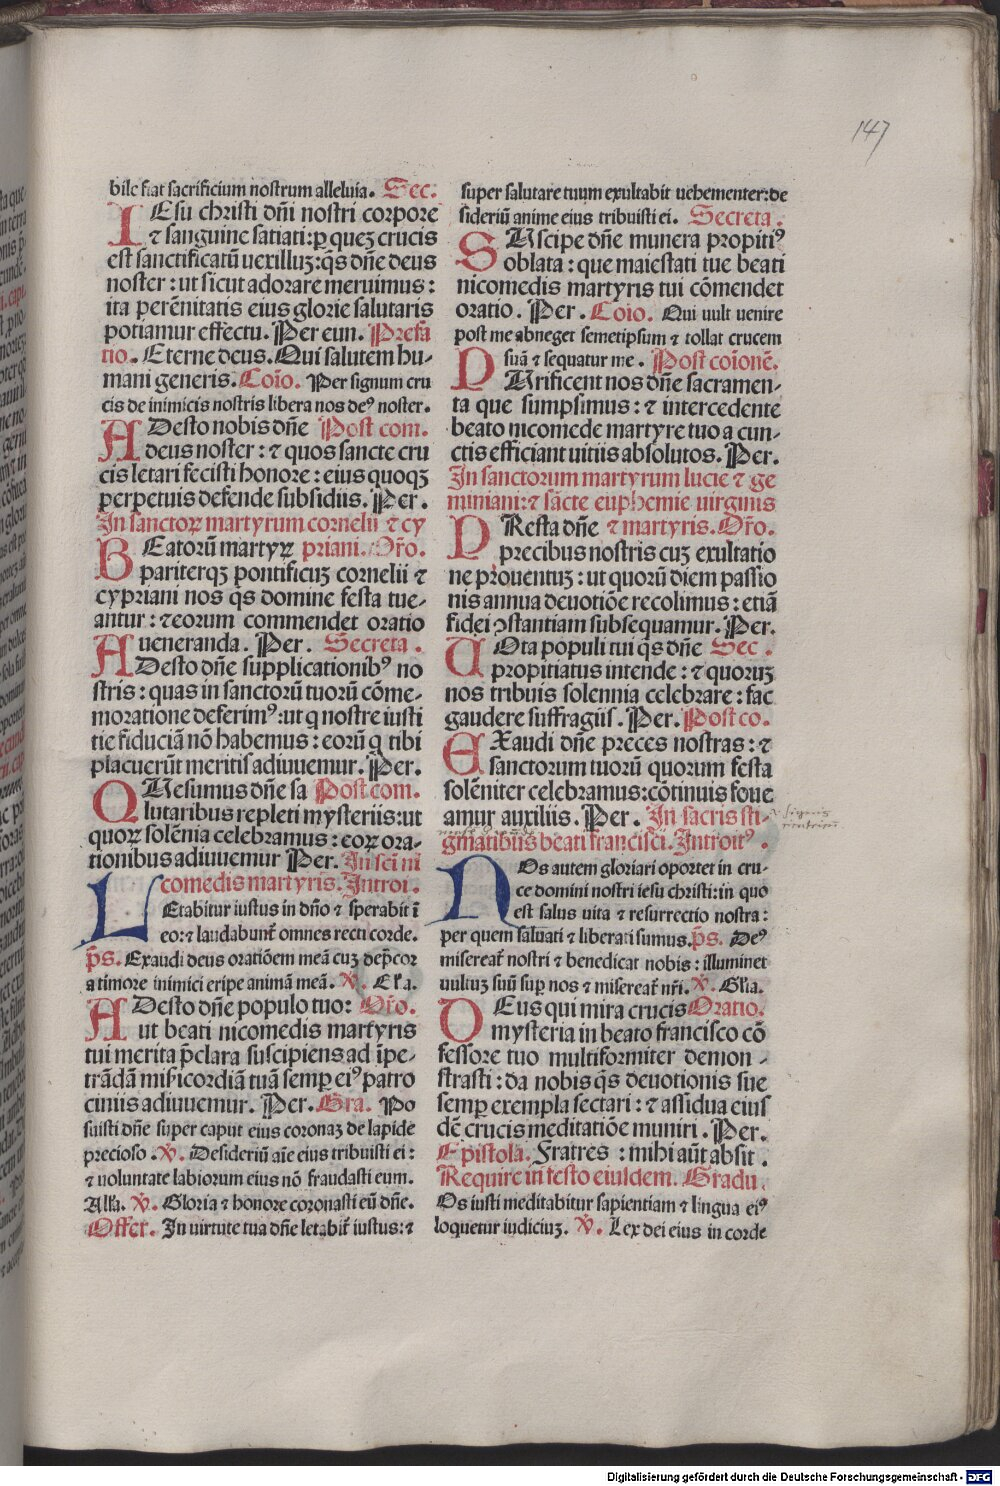 147
bile fiat sacrificium nostrum alleluia. Sec:
IEsu christi dñi nostri corpore
⁊ sanguine satiati: ꝑ queʒ crucis
est sanctificatũ uexilluʒ: q̃s dñe deus
noster: ut sicut adorare meruimus:
ita perẽnitatis eius glorie salutaris
potiamur effectu. Per eun. Prefa
tio. Eterne deus. Qui salutem hu-
mani generis. Coĩo. Per signum cru
cis de inimicis nostris libera nos deꝰ noster.
ADesto nobis dñe Post com.
deus noster: ⁊ quos sancte cru
cis letari fecisti honore: eius quoqʒ
perpetuis defende subsidiis. Per.
In sanctoꝝ martyrum cornelii ⁊ cy
BEatorũ martyꝝ priani. Or̃o.
pariterqʒ pontificuʒ cornelii ⁊
cypriani nos q̃s domine festa tue-
antur: ⁊ eorum commendet oratio
ueneranda. Per. Secreta.
ADesto dñe supplicationibꝰ no
stris: quas in sanctorũ tuorũ cõme-
moratione deferimꝰ: ut q nostre iusti
tie fiduciã nõ habemus: eorũ q tibi
placuerũt meritis adiuuemur. Per.
QUesumus dñe sa Post com.
lutaribus repleti mysteriis: ut
quoꝝ solẽnia celebramus: eoꝝ ora-
tionibus adiuuemur Per. In scĩ ni
comedis martyris. Introi.
LEtabitur iustus in dño ⁊ sperabit ĩ
eo: ⁊ laudabunt̃ omnes recti corde.
p̃s. Exaudi deus oratiõem meã cuʒ dep̃cor
a timore inimici eripe animã meã. ℣. Glĩa.
ADesto dñe populo tuo: Or̃o.
ut beati nicomedis martyris
tui merita p̃clara suscipiens ad ĩpe-
trãdã misericordiã tuã semꝑ eiꝰ patro
ciniis adiuuemur. Per. Gra. Po
suisti dñe super caput eius coronaʒ de lapide
precioso. ℣. Desideriũ aĩe eius tribuisti ei:
⁊ uoluntate labiorum eius nõ fraudasti eum.
Alla. ℣. Gloria ⁊ honore coronasti eũ dñe.
Offer. In uirtute tua dñe letabit̃ iustus: ⁊
super salutare tuum exultabit uehementer: de
sideriũ anime eius tribuisti ei. Secreta.
SUscipe dñe munera propitiꝰ
oblata: que maiestati tue beati
nicomedis martyris tui cõmendet
oratio. Per. Coĩo. Qui uult uenire
post me abneget semetipsum ⁊ tollat crucem
suã ⁊ sequatur me. Post coĩonẽ.
PUrificent nos dñe sacramen-
ta que sumpsimus: ⁊ intercedente
beato nicomede martyre tuo a cun-
ctis efficiant uitiis absolutos. Per.
In sanctorum martyrum lucie ⁊ ge
miniani: ⁊ sãcte euphemie uirginis
PResta dñe ⁊ martyris. Or̃o.
precibus nostris cuʒ exultatio
ne prouentuʒ: ut quorũ diem passio
nis annua deuotiõe recolimus: etiã
fidei ꝯstantiam subsequamur. Per.
UOta populi tui q̃s dñe Sec.
propitiatus intende: ⁊ quoruʒ
nos tribuis solennia celebrare: fac
gaudere suffragiis. Per. Post co.
EXaudi dñe preces nostras: ⁊
sanctorum tuorũ quorum festa
solẽniter celebramus: cõtinuis foue
amur auxiliis. Per. In sacris sti-
gmatibus beati francisci. Introitꝰ.
NOs autem gloriari oportet in cru-
ce domini nostri iesu christi: in quo
est salus uita ⁊ resurrectio nostra:
per quem saluati ⁊ liberati sumus. p̃s. Deꝰ
misereat̃ nostri ⁊ benedicat nobis: illuminet
uultuʒ suũ suꝑ nos ⁊ misereat̃ nr̃i. ℣. Glĩa.
DEus qui mira crucis Oratio.
mysteria in beato francisco cõ
fessore tuo multiformiter demon-
strasti: da nobis q̃s deuotionis sue
semꝑ exempla sectari: ⁊ assidua eius
dẽ crucis meditatiõe muniri. Per.
Epistola. Fratres: mihi aũt absit.
Require in festo eiusdem. Gradu.
Os iusti meditabitur sapientiam ⁊ lingua eiꝰ
loquetur iudiciuʒ. ℣. Lex dei eius in corde
Digitalisierung gefördert durch die Deutsche Forschungsgemeinschaft - DFG